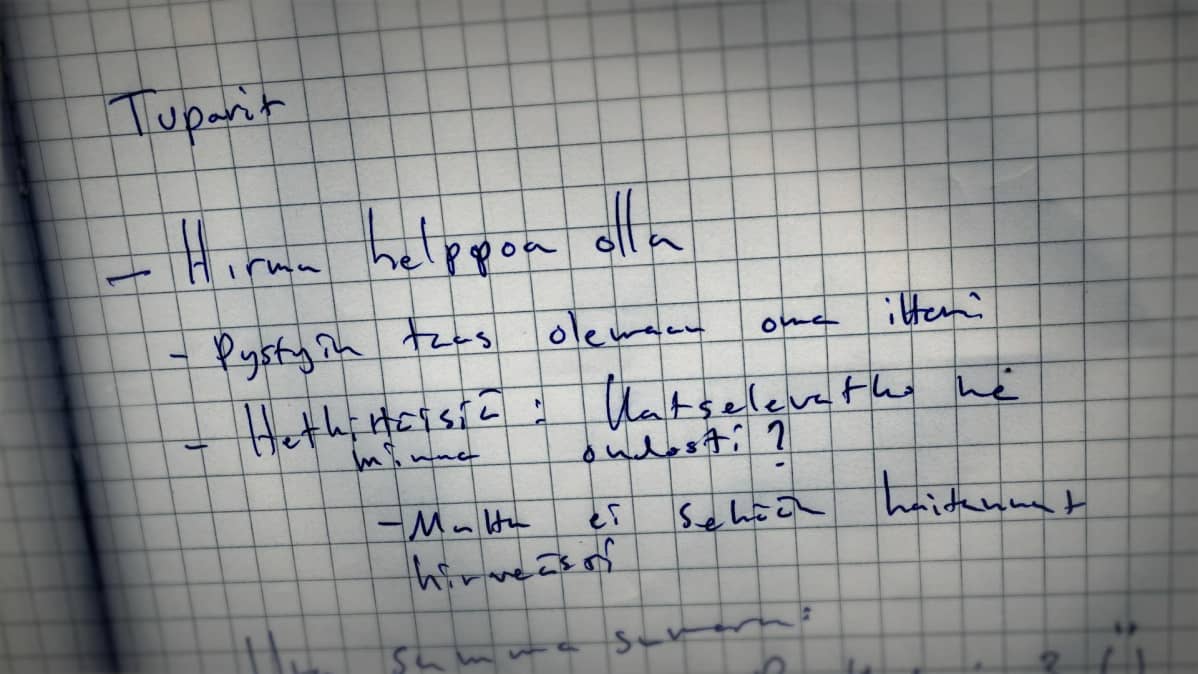 Tuparit
- Hirmu helppoa olla
- Pystyin taas olemaan oma itteni
- Hetkittäisiä: Katselevatko he
minua oudosti?
- Mutta ei sekään haitannut
hirveästi
summa summarum: